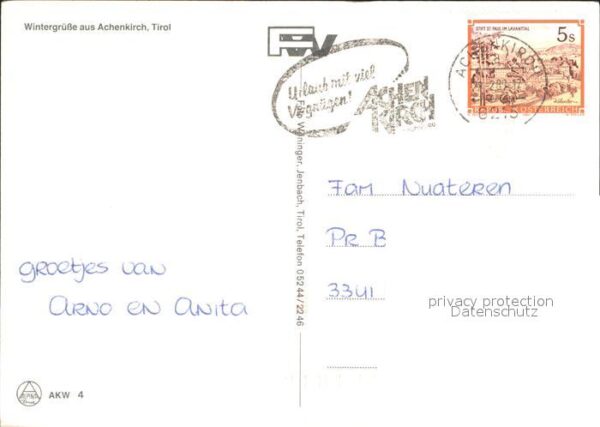 Wintergrüße aus Achenkirch, Tirol
FPV
Urlaub mit viel
Vergnügen!
ACHEN
KIRCH
STIFT ST. PAUL IM LAVANTTAL
5s
ACHENKIRCH
6215
Foto Wöninger, Jenbach, Tirol, Telefon 05244/2246
Fam Nuateren
PR B
3341
groetjes van
Arno en Anita
privacy protection
Datenschutz
AKW 4